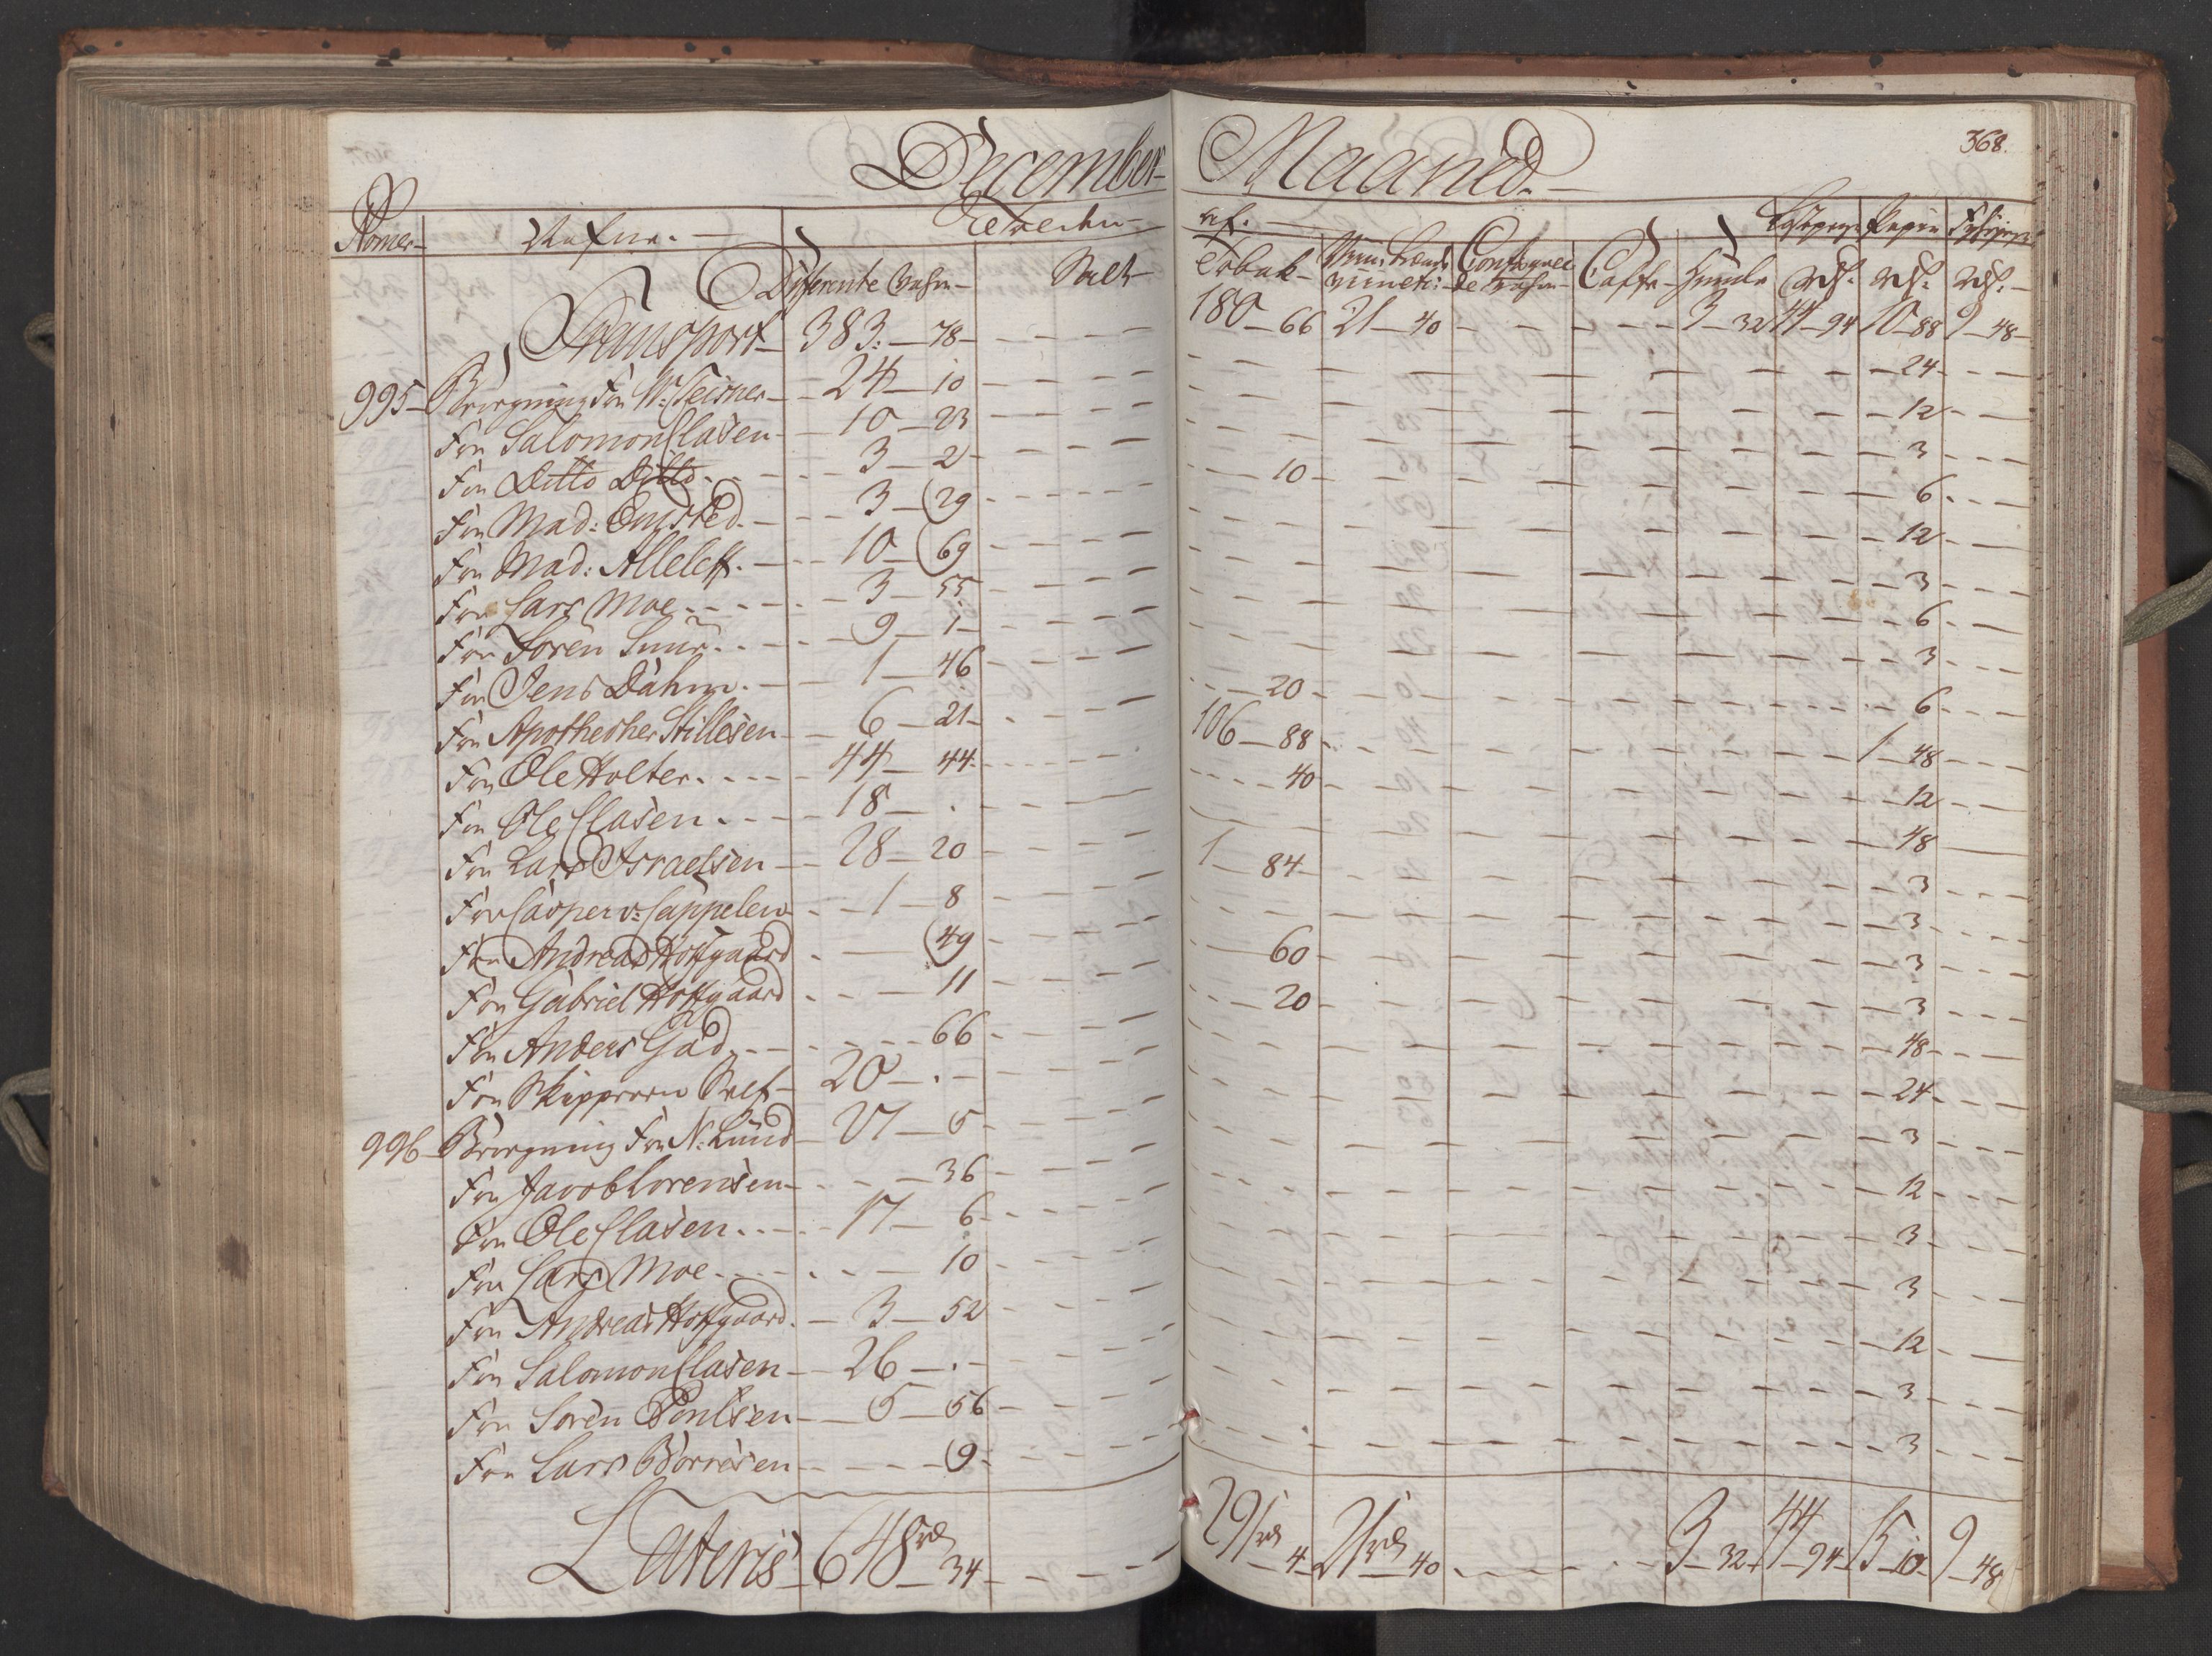 December Maaned.
368.
Nomer Nafne. Told
Differente Vahre Salt Tobak Viin, Brænde viin etc: Caffe Humle Papir
rdl. rdl. rdl.
Transport 383 78 180 66 21 40 3 32 44 94 10 88 9 48
995 Beregning For W: Teisner 24 10 24
For Salomon Clasen 10 23 12
For Ditto Ditto 3 2 3
For Mad: Omsted 3 29 10 6
For Mad: Alleleff 10 69 12
For Lars Moe 3 55 3
For Soren Smur 9 1 6
For Jens Dahm 1 46 3
For Apothecher Stillesen 6 21 20 6
For Ole Holter 44 44 106 88 1 48
For Ole Clasen 18 . 40 12
For Lars Israelsen 28 20 48
For Casper v: Cappelen 1 8 1 84 3
For Andreas Hofgaard 49 3
For Gabriel Hofgaard 11 60 3
For Anders Gad 66 20 3
For Skipperen Self 20 . 48
996 Beregning For N: Lund 27 5 24
For Jacob Lorensen 36 3
For Ole Clasen 17 6 12
For Lars Moe 10 3
For Andreas Hofgaard 3 52 3
For Salomon Clasen 26 . 12
For Soren Poulsen 5 56 3
For Lars Borresen 9 3
Lateris 648 rd 34 291 rd 4 21 rd 40 3 32 44 94 15 10 9 48